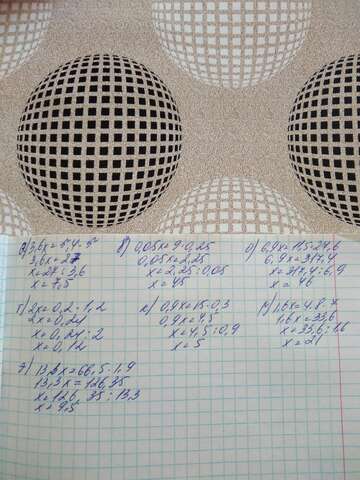 3,6x=5,4·5
3,6x=27
x=27:3,6
x=7,5
б) 0,05x=9·0,25
0,05x=2,25
x=2,25:0,05
x=45
6,9x=11,5·27,6
6,9x=317,4
x=317,4:6,9
x=46
2x=0,2·1,2
2x=0,24
x=0,24:2
x=0,12
0,9x=15·0,3
0,9x=4,5
x=4,5:0,9
x=5
1,6x=4,8·7
1,6x=33,6
x=33,6:1,6
x=21
13,3x=66,5·1,9
13,3x=126,35
x=126,35:13,3
x=9,5